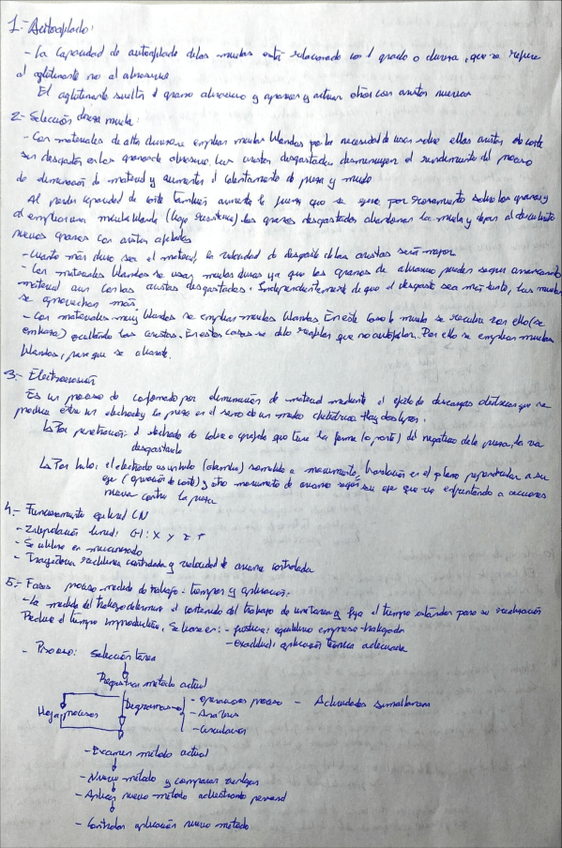 1.- Autoafilado:
- La capacidad de autoafilado de las muelas está relacionado con el grado o dureza, que se refiere
al aglutinante no al abrasivo
El aglutinante suelta el grano abrasivo y aparecen y actúan otros con aristas nuevas
2- Selección dureza muela:
- Con materiales de alta dureza se emplean muelas blandas por la necesidad de usar sobre ellas aristas de corte
sin desgastar en los granos de abrasivo. Las aristas desgastadas disminuyen el rendimiento del proceso
de eliminación de material y aumentan el calentamiento de pieza y muela
Al perder capacidad de corte también aumenta la fuerza que se ejerce por rozamiento sobre los granos y
al emplear una muela blanda los granos desgastados abandonan la muela y dejan al descubierto
nuevos granos con aristas afiladas
- Cuanto más duro sea el material, la velocidad de desgaste de las aristas será mayor
- Con materiales blandos se usan muelas duras ya que los granos de abrasivo pueden seguir arrancando
material aun con las aristas desgastadas. Independientemente de que el desgaste sea más lento, las muelas
se aprovechan más.
- Con materiales muy blandos se emplean muelas blandas. En este caso la muela se recubre con ello (se
embasa) ocultando las aristas. En estos casos se debe que no autoafilan. Por ello se emplean muelas
blandas, para que se
3.- Electroerosión
Es un proceso de conformado por eliminación de material mediante el efecto de descargas eléctricas que se
producen entre un electrodo y la pieza en el seno de un medio dieléctrico. Hay dos tipos:
Por penetración: el electrodo de cobre o grafito que tiene la forma (o parte) del negativo de la pieza, la va
desgastando
Por hilo: el electrodo es un hilo (alambre) sometido a movimiento, traslación en el plano perpendicular a su
eje (operación de corte) y otro movimiento de avance según su eje que va enfrentando a secciones
nueva contra la pieza
4.- Funcionamiento general CN
- Interpolación lineal: G1: X Y Z F
- Se utiliza en mecanizado
- Trayectoria rectilínea controlada y velocidad de avance controlada
5.- Fases proceso medida de trabajo: tiempos y aplicación:
- La medida del trabajo determina el contenido del trabajo de una tarea y fija el tiempo estándar para su realización
Reduce el tiempo improductivo. Se basa en: - Justicia: equilibrio empresa-trabajador
- Exactitud: aplicación técnica adecuada
- Proceso: Selección tarea
Registrar método actual
Hoja procesos
Diagramas
- operaciones proceso - Actividades simultáneas
- Análisis
- Circulación
- Examen método actual
- Nuevo método y comparar ventajas
- Aplicar nuevo método adiestrando personal
- Controlar aplicación nuevo método